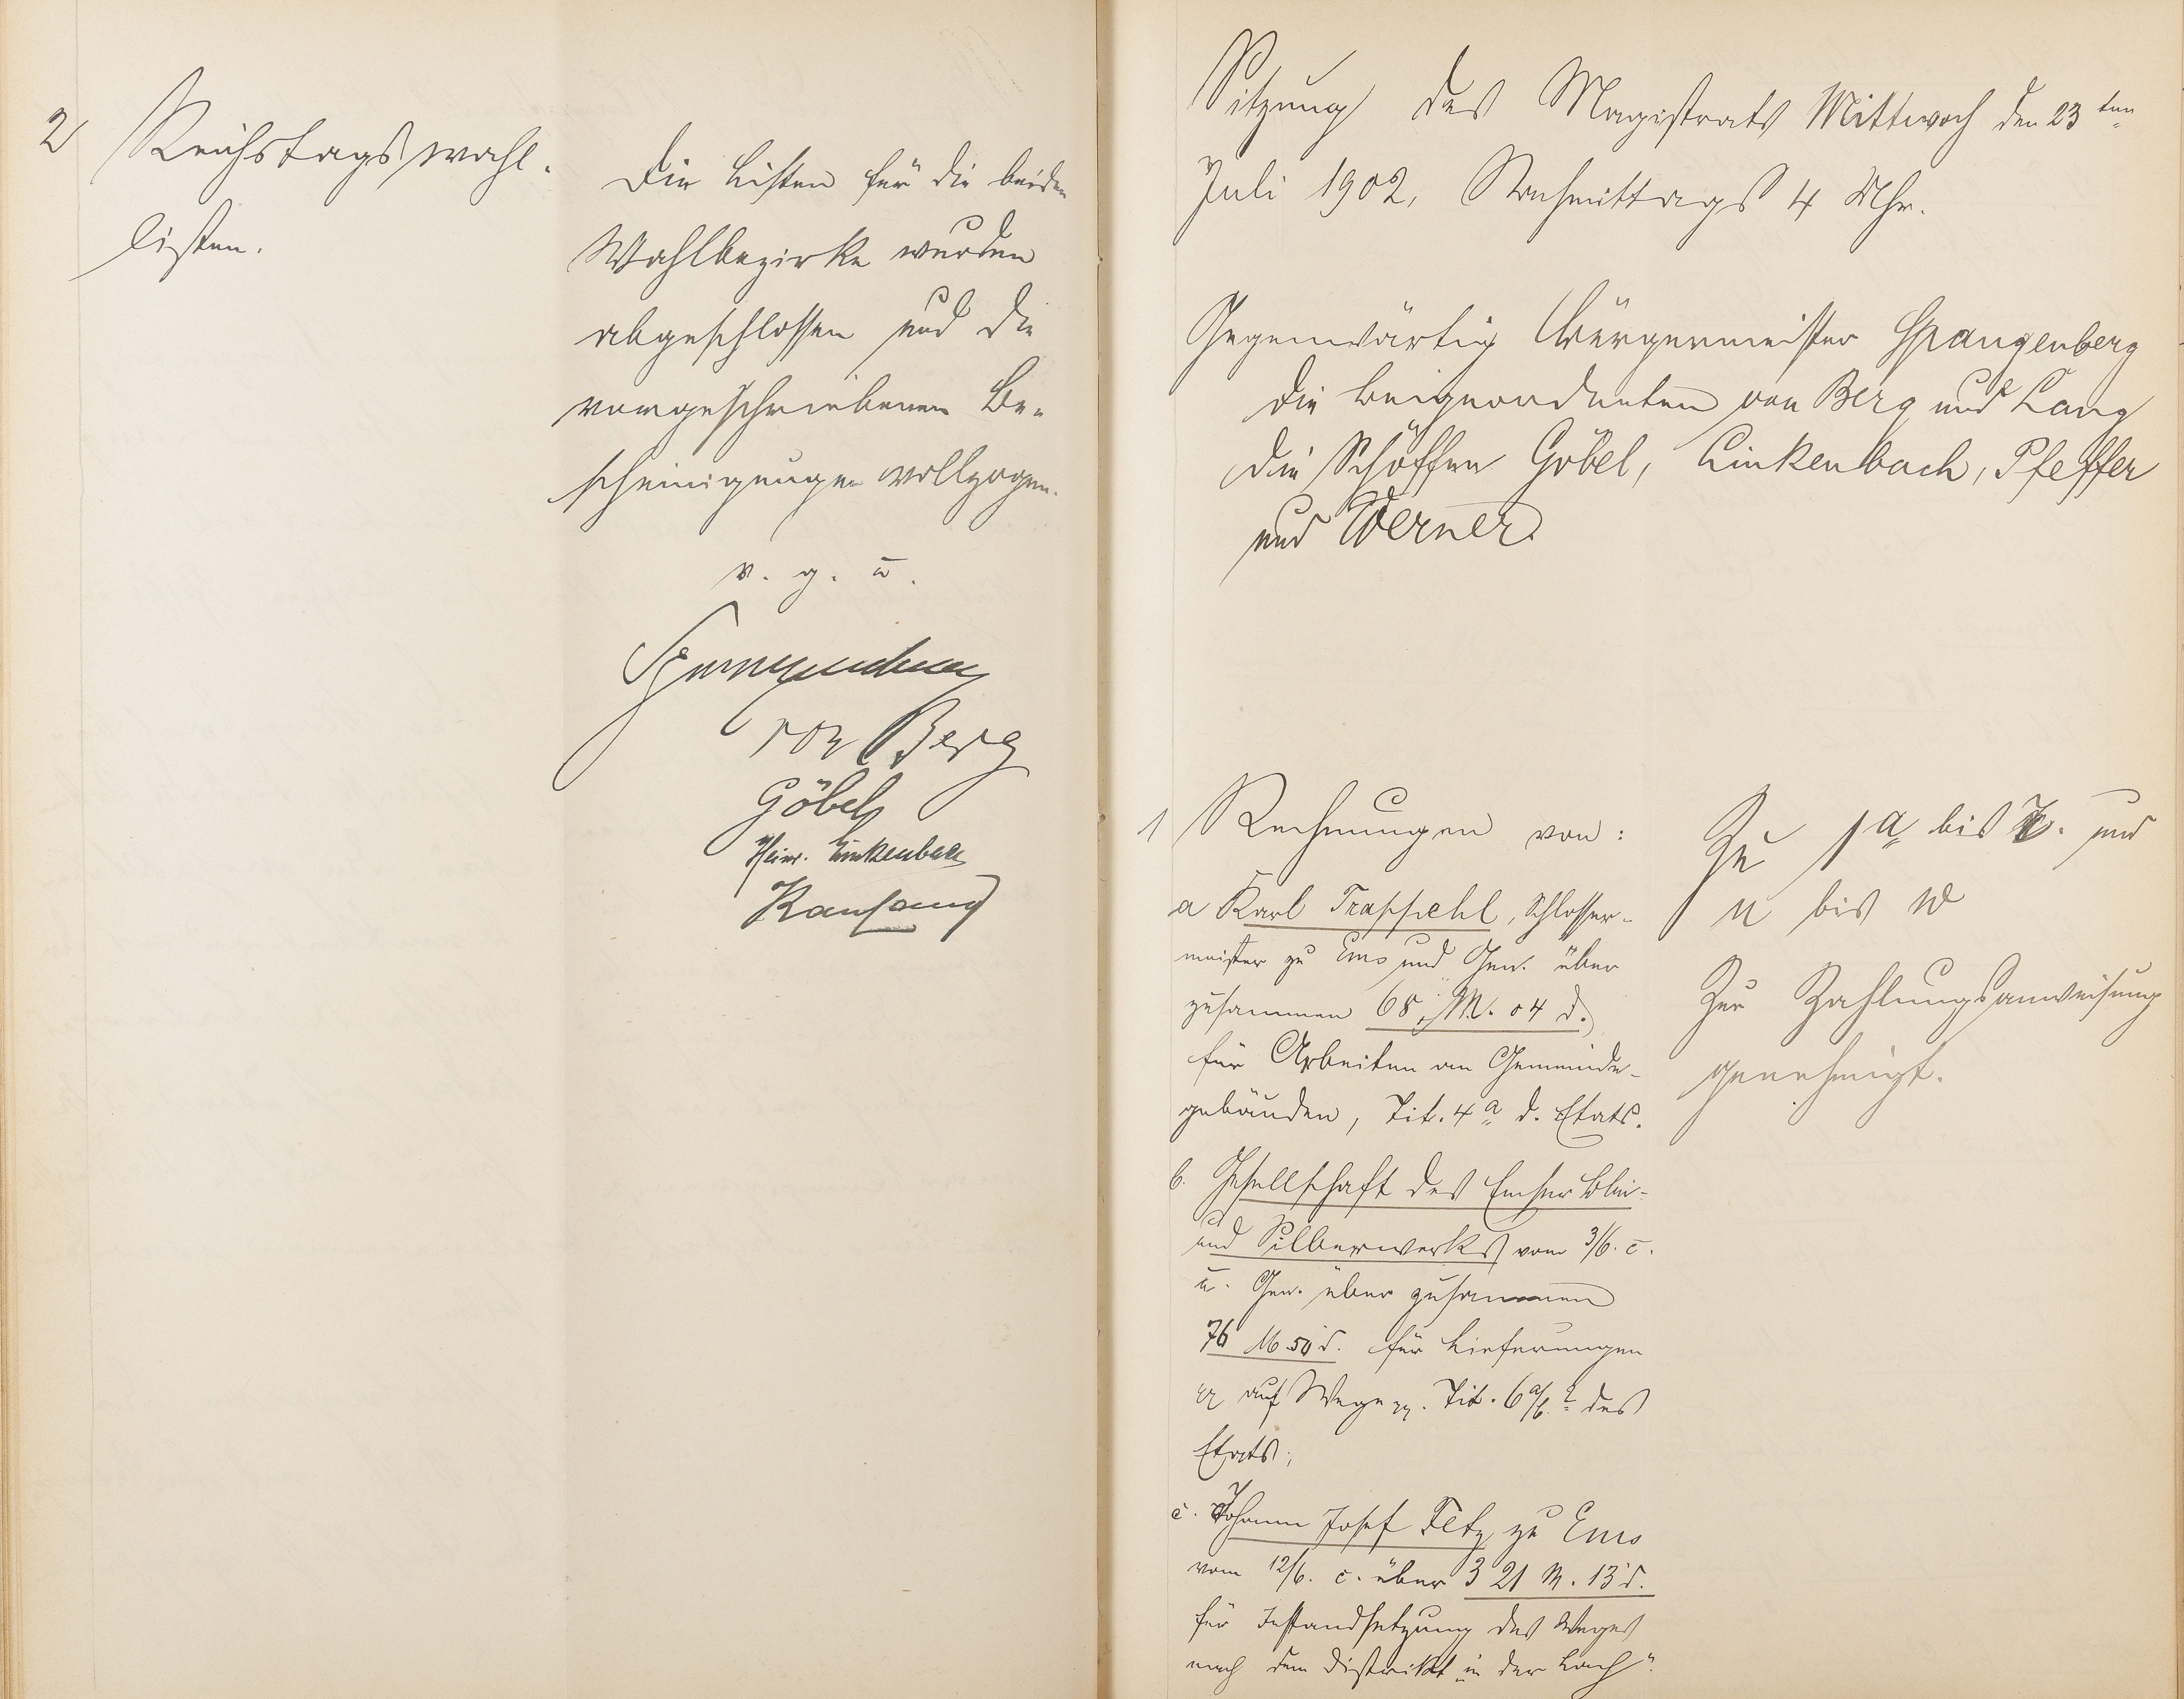 2) Reichstagswahl-
listen.
Die Listen für die beiden
Wahlbezirke wurden
abgeschlossen und die
vorgeschriebenen Be-
scheinigungen vollzogen.
v. g. u.
Spangenberg
von Berg
Göbel
Heinr. Linkenbach
Sitzung des Magistrats Mittwoch den 23ten
Juli 1902, Nachmittags 4 Uhr.
Gegenwärtig Bürgermeister Spangenberg
die Beigeordneten von Berg und Lang
die Schöffen Göbel, Linkenbach, Pfeffer
und Werner
1 Rechnungen von:
a Karl Trappehl, Schlosser-
meister zu Ems und Gen. über
zusammen 68 M. 04 d.
für Arbeiten an Gemeinde-
gebäuden, Tit. 4a d. Etats.
b. Gesellschaft des Emser Blei-
und Silberwerks vom 3/6. c.
u. Gen. über zusammen
76 M 50 d. für Lieferungen
auf Wege Tit. 6 des
Etats;
c. Johann Josef Fetz zu Ems
vom 12/6. c. über 321 M. 13 d.
für Instandsetzung des Weges
nach dem Distrikt "in der Lach".
Zu 1a bis und
n bis w
Zur Zahlungsanweisung
genehmigt.